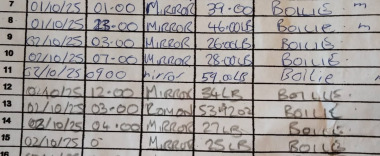 7 01/10/25 01.00 MIRROR 39.00 BOILIE m
8 01/10/25 23.00 MIRROR 46.00LB BOILIE
9 02/10/25 03.00 MIRROR 26.00LB BOILIE.
10 02/10/25 07.00 MIRROR 28.00LB BOILIE.
11 02/10/25 0900 Mirror 59.00LB Boilie
12 12.00 MIRROR 34LB
13 01/10/25 03:00 ROMAN BOILIE.
14 02/10/25 04.000 MIRROR 27LB BOILIE
15 02/10/25 0 MIRROR 25LB BOILIE